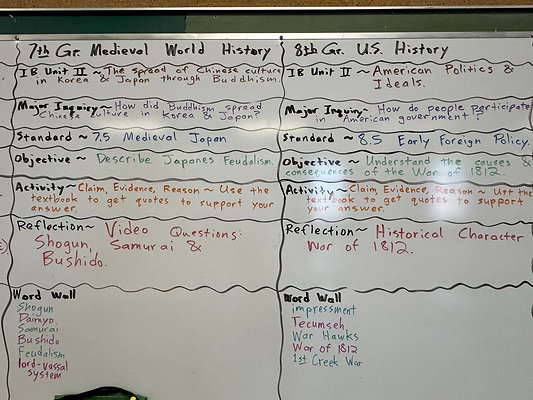 7th Gr. Medieval World History
IB Unit II ~ The spread of Chinese culture
in Korea & Japan through Buddhism.
Major Inquiry ~ How did Buddhism spread
Chinese culture in Korea & Japan?
Standard ~ 7.5 Medieval Japan
Objective ~ Describe Japones Feudalism.
Activity ~ Claim, Evidence, Reason ~ Use the
textbook to get quotes to support your
answer.
Reflection ~ Video Questions:
Shogun, Samurai &
Bushido.
Word Wall
Shogun
Daimyo
Samurai
Bushido
Feudalism
lord-vassal
system
8th Gr. U.S. History
IB Unit II ~ American Politics &
Ideals.
Major Inquiry ~ How do people participate
in American government?
Standard ~ 8.5 Early Foreign Policy.
Objective ~ Understand the causes &
consequences of the War of 1812.
Activity ~ Claim, Evidence, Reason ~ Use the
textbook to get quotes to support
your answer.
Reflection ~ Historical Character
War of 1812.
Word Wall
impressment
Tecumseh
War Hawks
War of 1812
1st Creek War